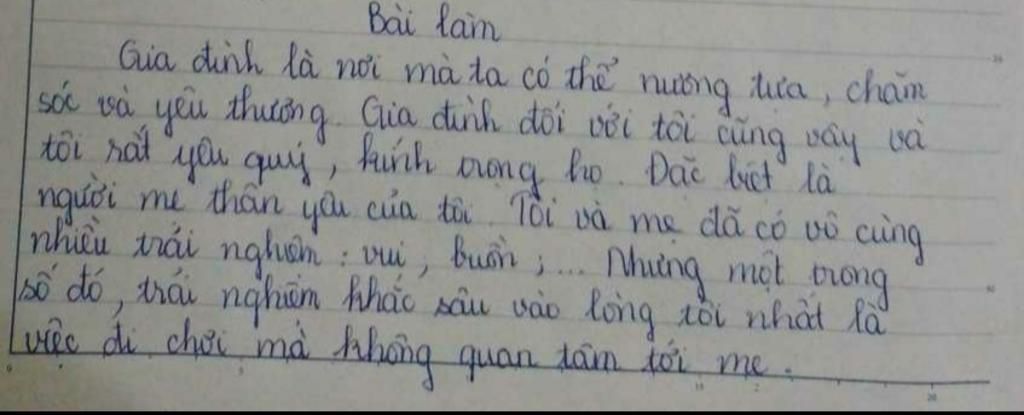 Bài làm
Gia đình là nơi mà ta có thể nương tựa, chăm
sóc và yêu thương. Gia đình đối với tôi cũng vậy và
tôi rất yêu quý, kính trọng họ. Đặc biệt là
người mẹ thân yêu của tôi. Tôi và mẹ đã có vô cùng
nhiều trải nghiệm: vui, buồn;... Nhưng một trong
số đó, trải nghiệm khắc sâu vào lòng tôi nhất là
việc đi chơi mà không quan tâm tới mẹ.